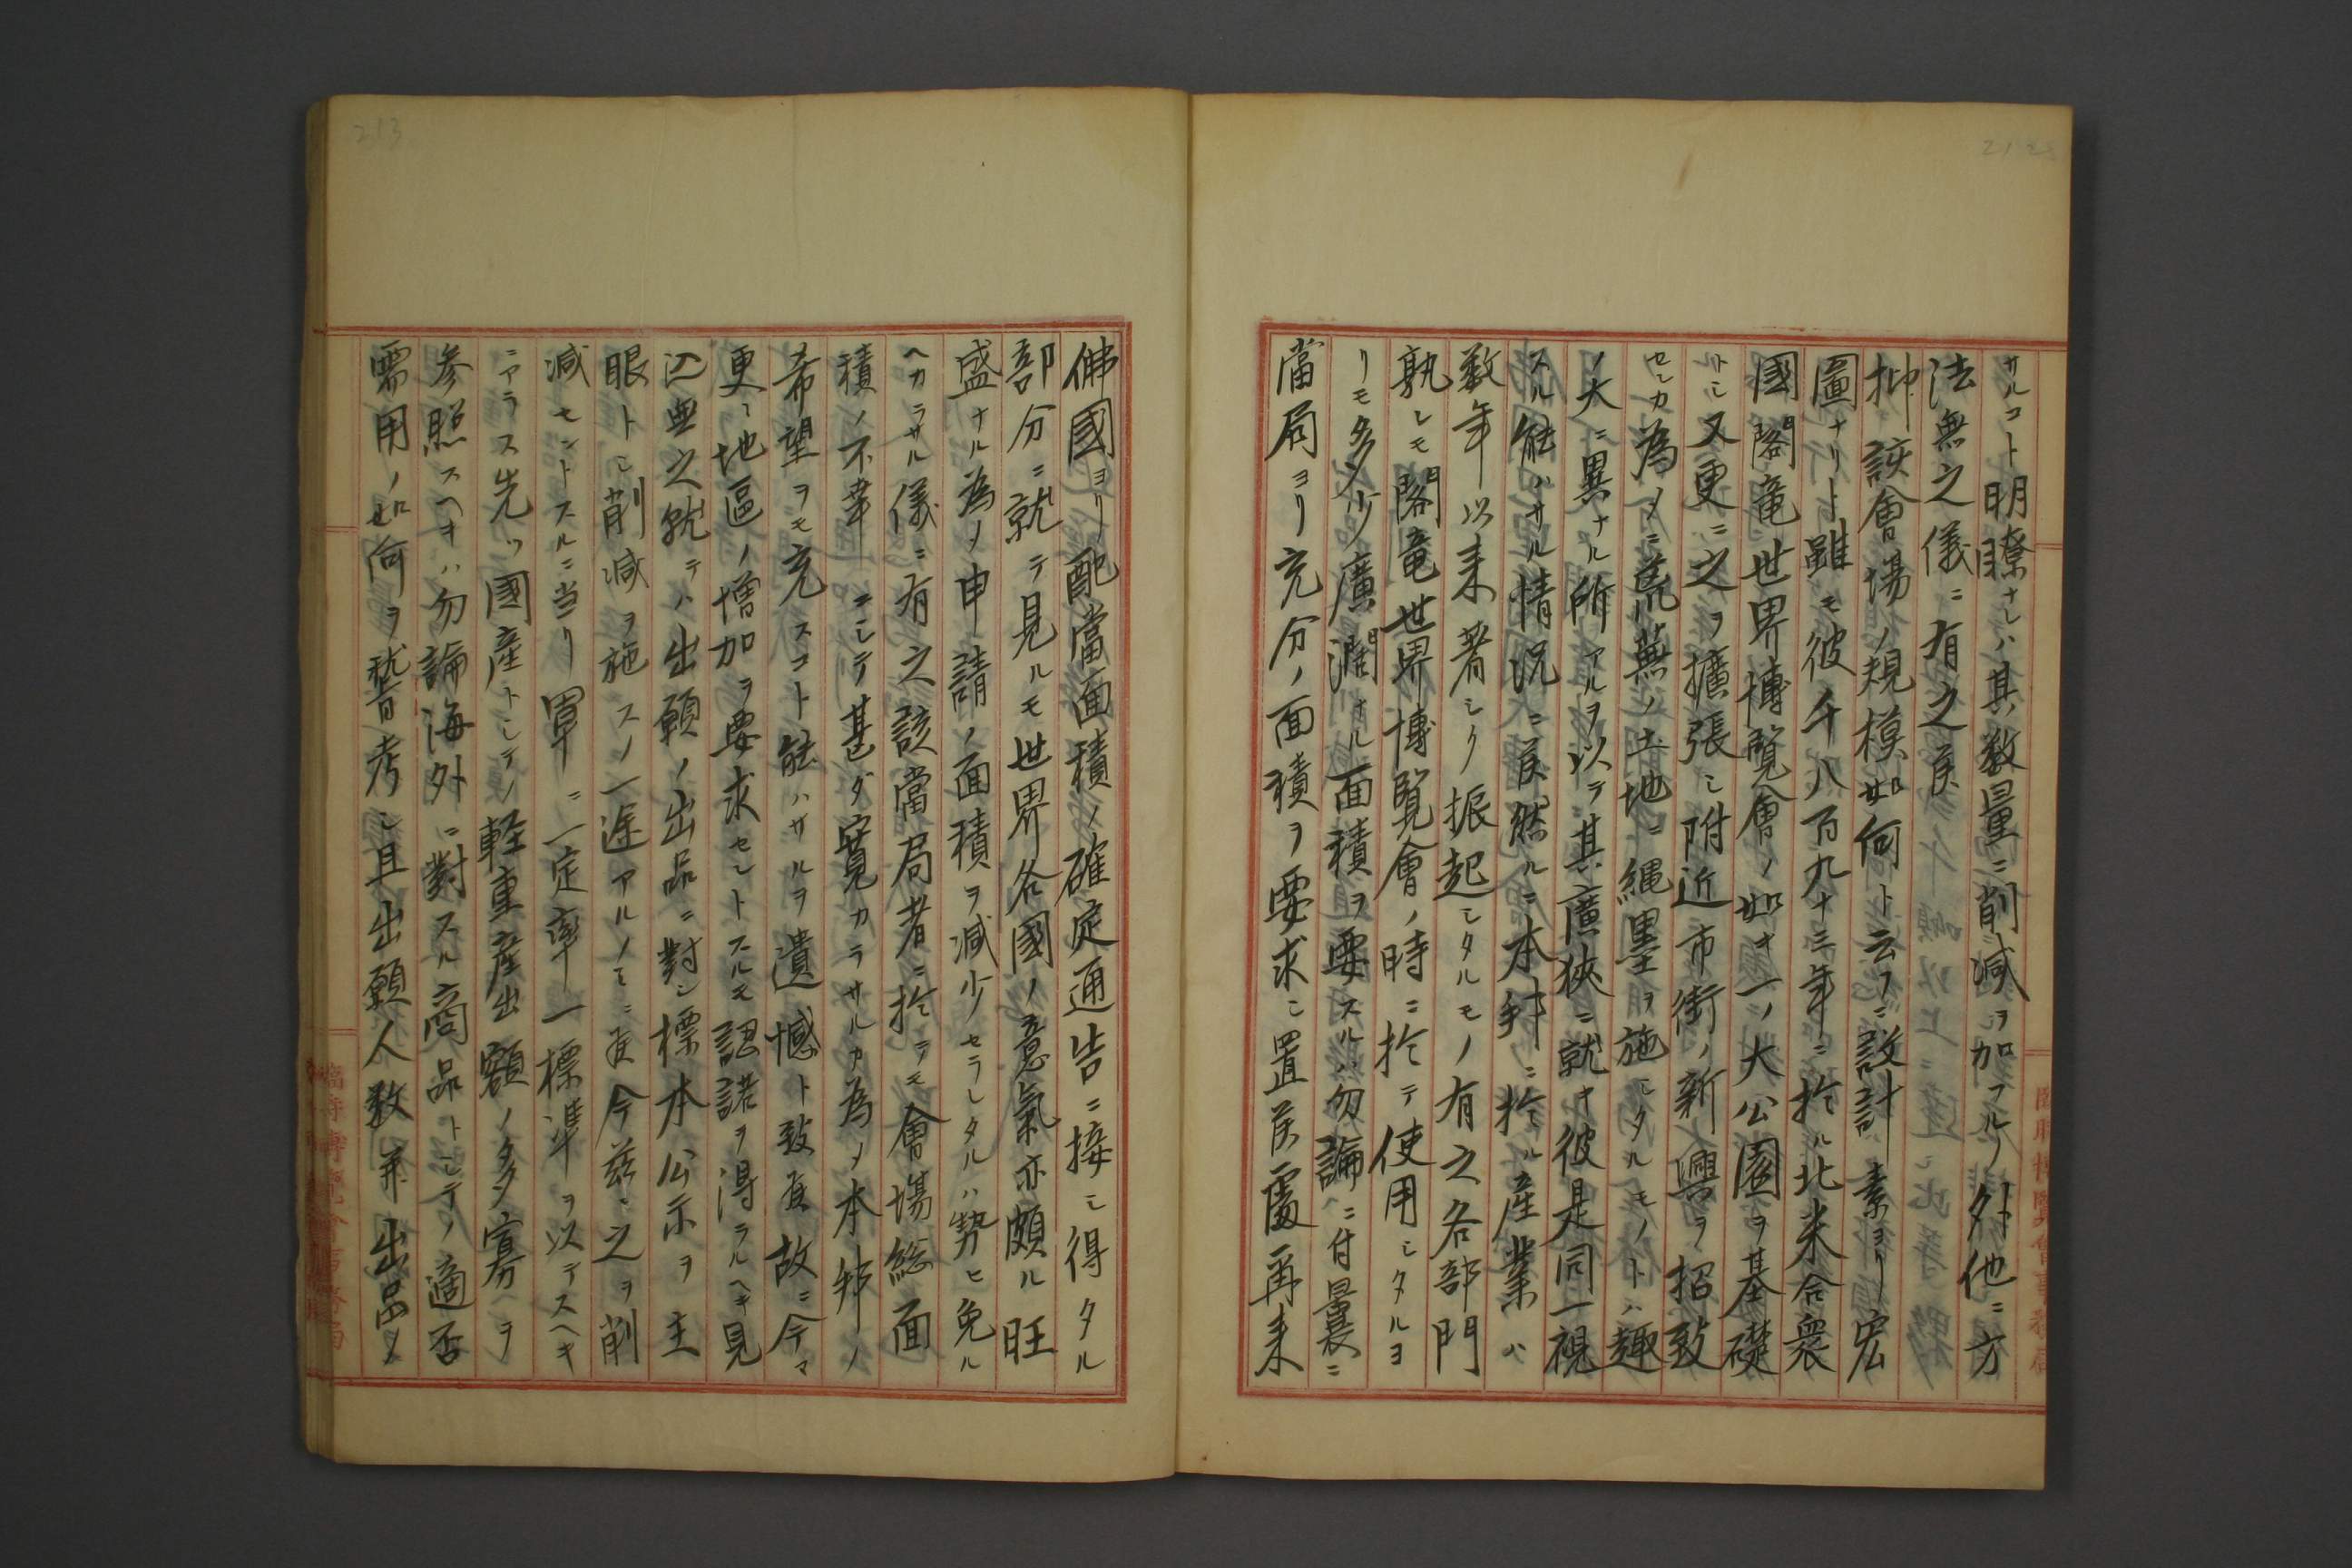 サルコト明瞭ナレハ其数量ニ削減ヲ加フルノ外他ニ方
法無之儀ニ有之候
抑該會場ノ規模如何ト云フニ設計素ヨリ宏
圖ナリト雖モ彼千八百九十三年ニ於ル北米合衆
國閣竜世界博覧會ノ如キ一ノ大公園ヲ基礎
トシ又更ニ之ヲ擴張シ附近市街ノ新興ヲ招致
センカ為メニ荒蕪ノ土地ニ縄墨ヲ施シタルモノトハ趣
ノ大ニ異ナル所アルヲ以テ其廣狹ニ就キ彼是同一視
スル能ハサル情況ニ候然ルニ本邦ニ於ル産業ハ
数年以来著シク振起シタルモノ有之各部門
孰レモ閣竜世界博覧會ノ時ニ於テ使用シタルヨ
リモ多少廣濶ナル面積ヲ要スルハ勿論ニ付曩ニ
當局ヨリ充分ノ面積ヲ要求シ置候處再来
佛國ヨリ配當面積ノ確定通告ニ接シ得タル
部分ニ就テ見ルモ世界各國ノ意氣亦頗ル旺
盛ナル為メ申請ノ面積ヲ減少セラレタルハ勢ヒ免ル
ヘカラサル儀ニ有之該當局者ニ於テモ會場総面
積ノ不幸ニシテ甚ダ寛カラサルカ為メ本邦ノ
希望ヲモ充スコト能ハサルヲ遺憾ト致候故ニ今マ
更ニ地區ノ増加ヲ要求セントスルモ認諾ヲ得ラルヘキ見
込無之就テハ出願ノ出品ニ對シ標本公示ヲ主
眼トシ削減ヲ施スノ一途アルノミニ候今茲ニ之ヲ削
減セントスルニ当リ單ニ一定率一標準ヲ以テスヘキ
ニアラス先ツ國産トシテノ軽重産出額ノ多寡ヲ
参照スヘキハ勿論海外ニ對スル商品トシテノ適否
需用ノ如何ヲ稽考シ且出願人数并出品ノ
臨時博覧會事務局